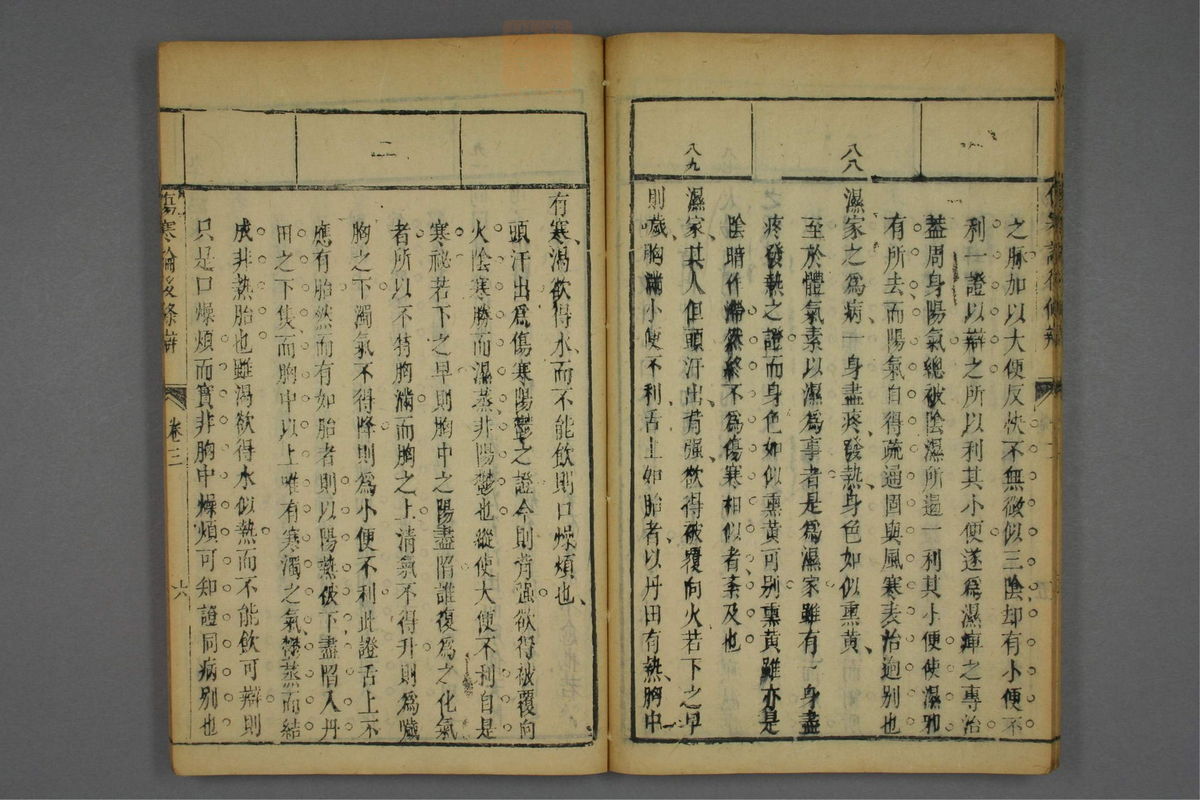 之脈加以大便反快不無微似三陰却有小便不
利一證以辯之所以利其小便遂為濕痺之專治
蓋周身陽氣總被陰濕所遏一利其小便使濕邪
有所去而陽氣自得疏通固與風寒表治逈別也
八八
濕家之為病一身盡疼發熱身色如似熏黃
至於體氣素以濕為事者是為濕家雖有一身盡
疼發熱之證而身色如似熏黃可別熏黃雖亦是
陰暗作滯然終不為傷寒相似者紊及也
八九
濕家其人但頭汗出背强欲得被覆向火若下之早
則噦胸滿小便不利舌上如胎者以丹田有熱胸中
有寒渴欲得水而不能飲則口燥煩也
頭汗出為傷寒陽鬱之證今則背强欲得被覆向
火陰寒勝而濕蒸非陽鬱也縱使大便不利自是
二
寒祕若下之早則胸中之陽盡陷誰復為之化氣
者所以不特胸滿而胸之上清氣不得升則為噦
胸之下濁氣不得降則為小便不利此證舌上不
應有胎然而有如胎者則以陽熱彼下盡陷入丹
田之下隻而胸中以上唯有寒濁之氣鬱蒸而結
成非熱胎也雖渴欲得水似熱而不能飲可辯則
只是口燥煩而實非胸中燥煩可知證同病別也
傷寒論後條辯
卷三
六